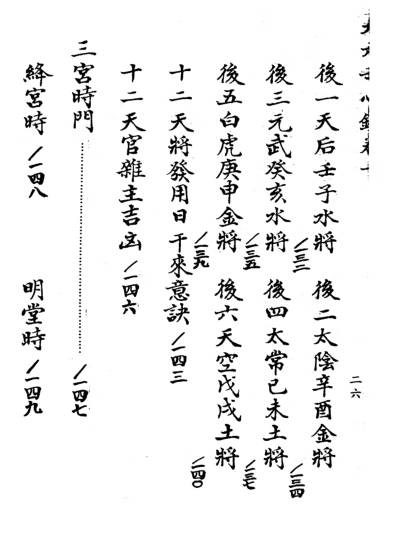 二六
後一天后壬子水將/一三二
後二太陰辛酉金將/一三四
後三元武癸亥水將/一三五
後四太常己未土將/一三七
後五白虎庚申金將/一三九
後六天空戊戌土將/一四〇
十二天將發用日干來意訣/一四三
十二天官雜主吉凶/一四六
三宮時門……/一四七
絳宮時/一四八
明堂時/一四九